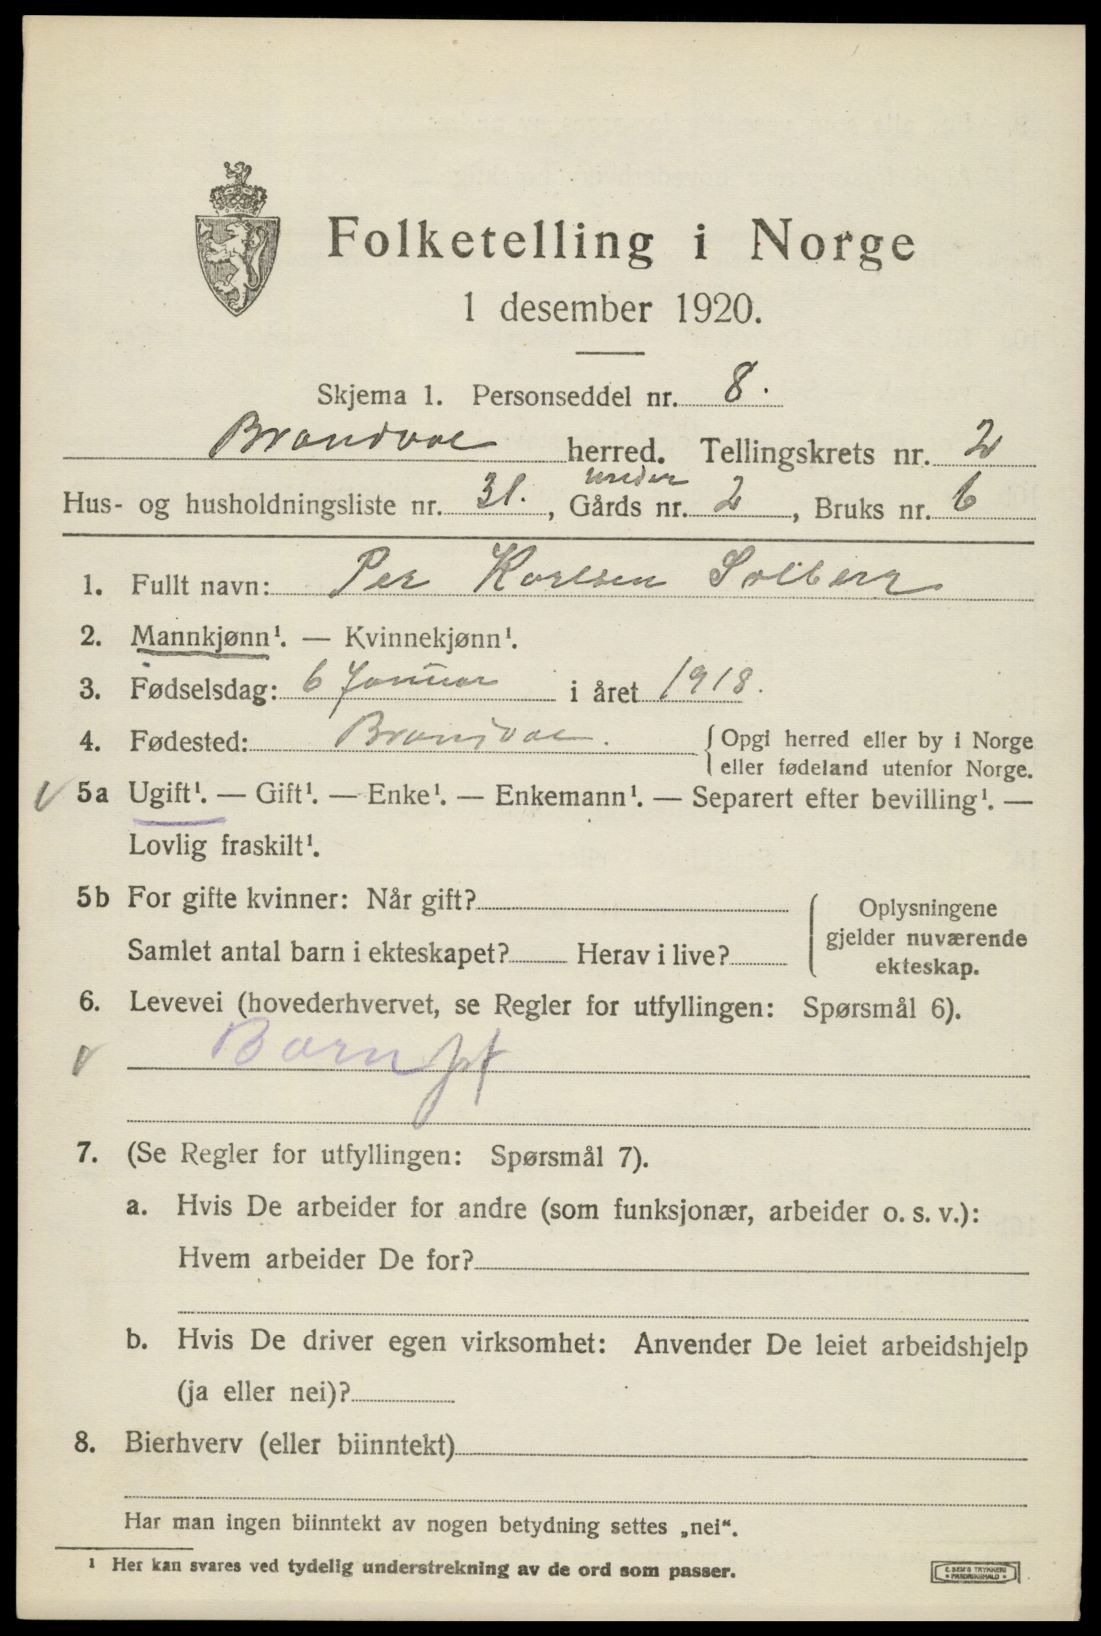 Folketelling i Norge
1 desember 1920.
Skjema 1. Personseddel nr. 8.
Brandval herred. Tellingskrets nr. 2
under
Hus- og husholdningsliste nr. 31., Gårds nr. 2, Bruks nr. 6
1. Fullt navn: Per Karlsen Solberg
2. Mannkjønn¹. — Kvinnekjønn¹.
3. Fødselsdag: 6 Januar i året 1918.
4. Fødested: Brandval. { Opgi herred eller by i Norge
eller fødeland utenfor Norge.
5a Ugift¹. — Gift¹. — Enke¹. — Enkemann¹. — Separert efter bevilling¹. —
Lovlig fraskilt¹.
5b For gifte kvinner: Når gift?
Samlet antal barn i ekteskapet? Herav i live?
{ Oplysningene
gjelder nuværende
ekteskap.
6. Levevei (hovederhvervet, se Regler for utfyllingen: Spørsmål 6).
Barn
7. (Se Regler for utfyllingen: Spørsmål 7).
a. Hvis De arbeider for andre (som funksjonær, arbeider o. s. v.):
Hvem arbeider De for?
b. Hvis De driver egen virksomhet: Anvender De leiet arbeidshjelp
(ja eller nei)?
8. Bierhverv (eller biinntekt)
Har man ingen biinntekt av nogen betydning settes „nei“.
¹ Her kan svares ved tydelig understrekning av de ord som passer.
E. SEM'S TRYKKERI
• FREDRIKSHALD •